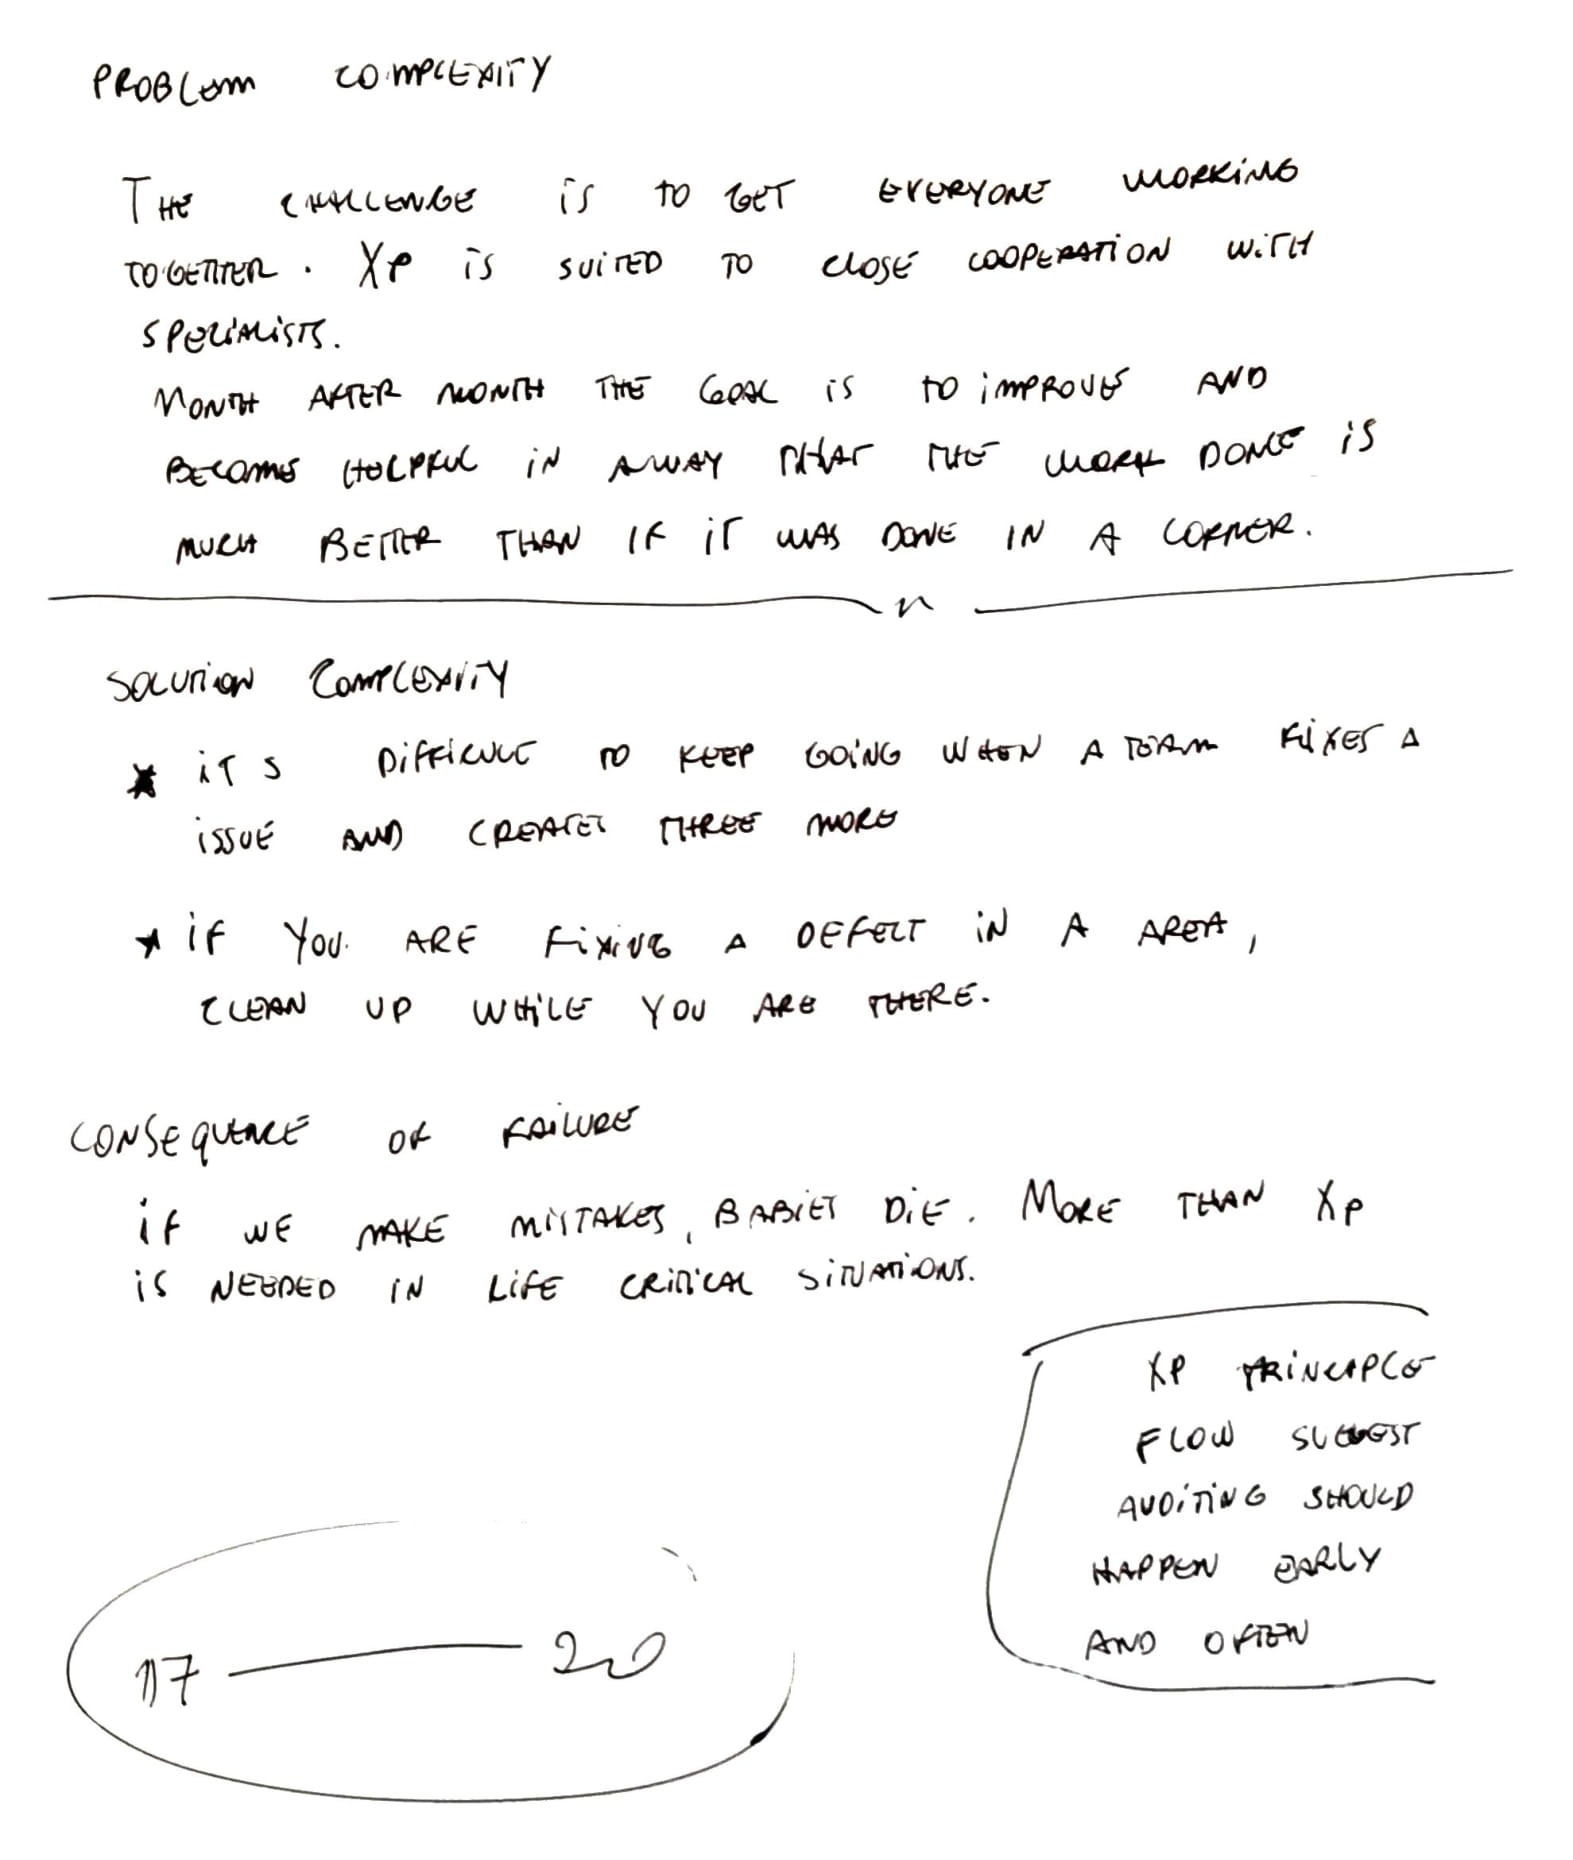 PROBLEM COMPLEXITY
THE CHALLENGE IS TO GET EVERYONE WORKING
TOGETHER. XP IS SUITED TO CLOSE COOPERATION WITH
SPECIALISTS.
MONTH AFTER MONTH THE GOAL IS TO IMPROVE AND
BECOME HELPFUL IN A WAY THAT THE WORK DONE IS
MUCH BETTER THAN IF IT WAS DONE IN A CORNER.
SOLUTION COMPLEXITY
* ITS DIFFICULT TO KEEP GOING WHEN A TEAM FIXES A
ISSUE AND CREATES THREE MORE
* IF YOU ARE FIXING A DEFECT IN A AREA,
CLEAN UP WHILE YOU ARE THERE.
CONSEQUENCE OF FAILURE
IF WE MAKE MISTAKES, BABIES DIE. MORE THAN XP
IS NEEDED IN LIFE CRITICAL SITUATIONS.
XP PRINCIPLE
FLOW SUGGEST
AUDITING SHOULD
HAPPEN EARLY
AND OFTEN
117 — 20